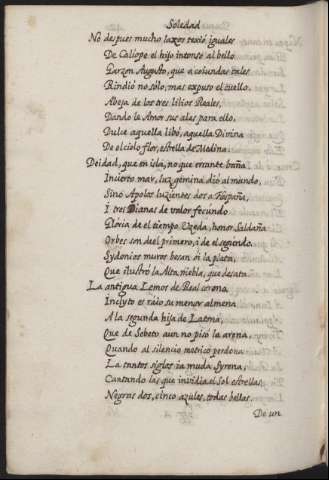 Soledad
No despues mucho lazos texiò iguales
De Caliope el hijo intonso al bello
Garzon Augusto, que a coiundas tales
Rindiò no sólo, mas expuso el cuello.
Abeja de los tres lilios Reales,
Dando la Amor sus alas para ello,
Dulce aquella libó, aquella Divina
De el cielo flor, estrella de Medina.
Deidad, que en isla, no que errante baña
Incierto mar, luz gemina diò al mundo,
Sinó Apolos luzientes dos a España,
I tres Dianas de valor fecundo
Gloria de el tiempo Uzeda, honor Saldaña
Orbes son de el primero, i de el segundo.
Sydonios muros besan oi la plata,
Que ilustrò la Alta Niebla, que desata.
La antigua Lemos de Real corona,
Inclyto es raio su menor almena
A la segunda hija de Latona,
Que de Sebeto aun no pisó la arena,
Quando al silencio metrico perdona
La tantos siglos ia muda Syrena,
Cantando las que invidia el Sol estrellas,
Negras dos, cinco azules, todas bellas.
De un